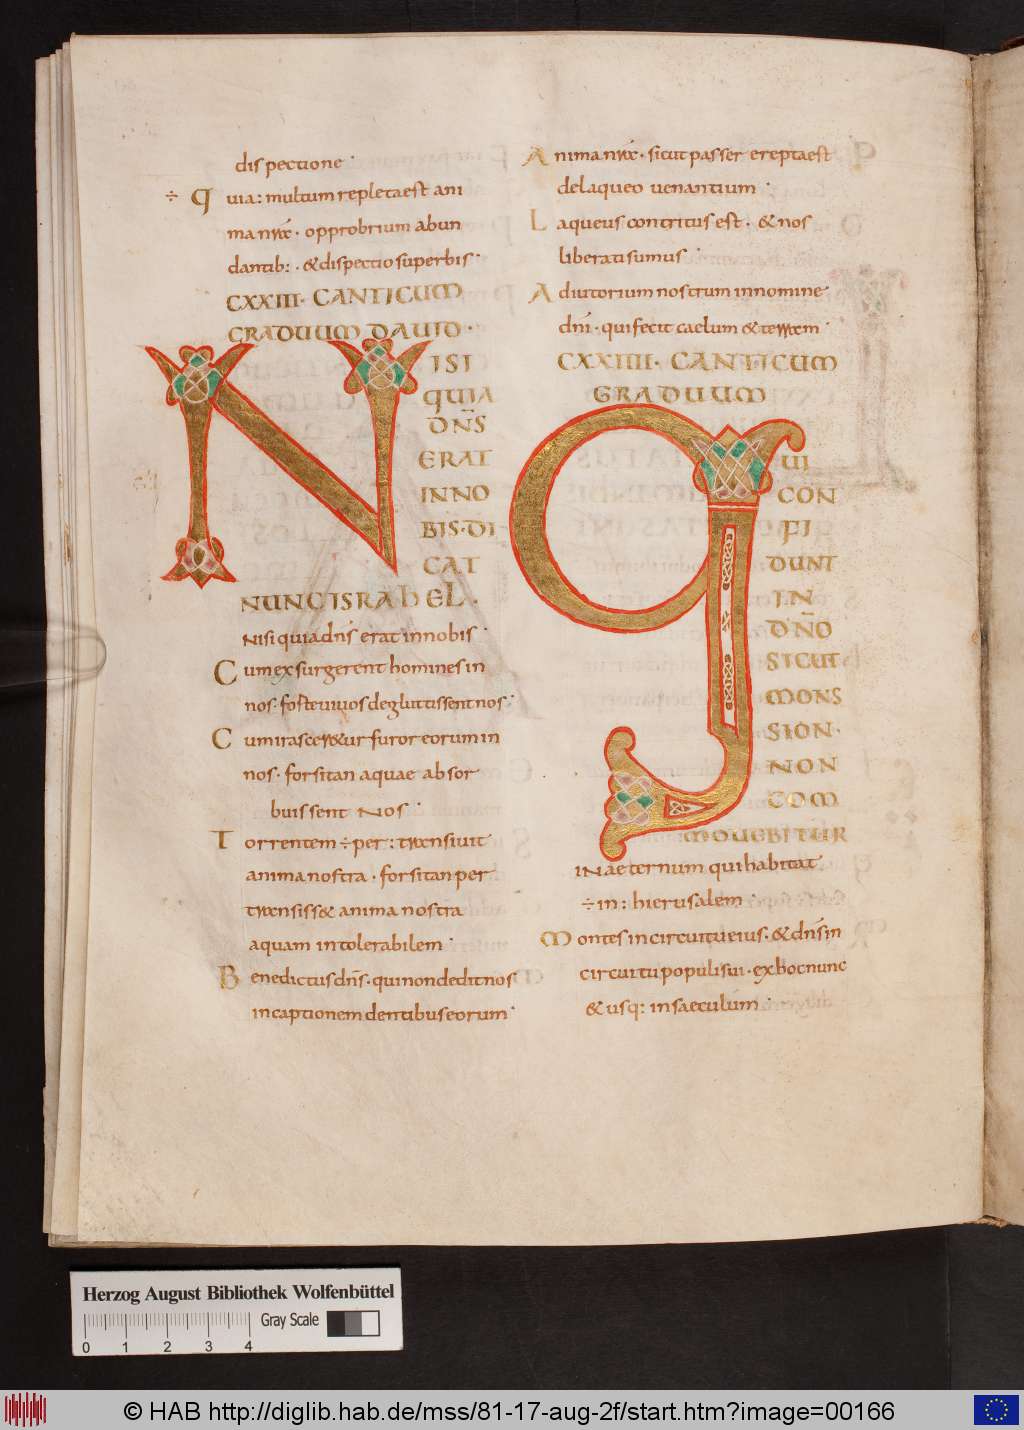 dispectione ·
÷ Quia: multum repleta est ani
ma nr̄a · opprobrium abun
dantib: · & dispectio superbis ·
CXXIII · CANTICUM
GRADUUM DAVID ·
NISI
QUIA
DN̄S
ERAT
IN NO
BIS · DI
CAT
NUNC ISRAHEL ·
Nisi quia dn̄s erat in nobis ·
Cum exsurgerent homines in
nos · forte vivos deglutissent nos ·
Cum irasceretur furor eorum in
nos · forsitan aquae absor
buissent nos ·
Torrentem ÷ per: transivit
anima nostra · forsitan per
transiss& anima nostra
aquam intolerabilem ·
Benedictus dn̄s · qui non dedit nos
in captionem dentibus eorum ·
Anima nr̄a · sicut passer erepta est
de laqueo venantium ·
Laqueus contritus est · & nos
liberati sumus ·
Adiutorium nostrum in nomine
dn̄i · qui fecit caelum & terram ·
CXXIIII · CANTICUM
GRADUUM
QUI
CON
FI
DUNT
IN
DN̄O
SICUT
MONS
SION ·
NON
COM
MOVEBITUR
IN aeternum qui habitat
÷ in: hierusalem ·
Montes in circuitu eius · & dn̄s in
circuitu populi sui · ex hoc nunc
& usq: in saeculum ·
Herzog August Bibliothek Wolfenbüttel
Gray Scale
0 1 2 3 4
© HAB http://diglib.hab.de/mss/81-17-aug-2f/start.htm?image=00166